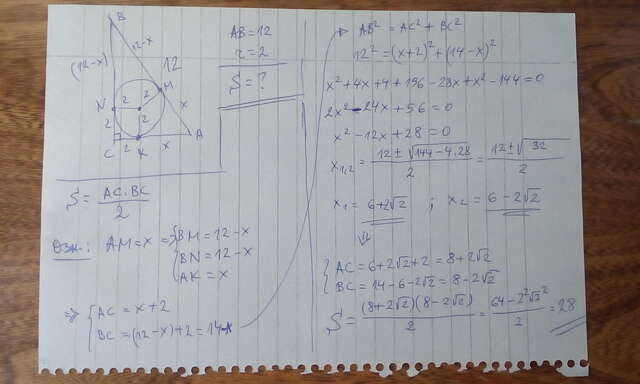 B
12-x
(12-x)
12
M
N 2 2
2 2
x
C 2 K x A
AB=12
r=2
S=?
S = AC.BC / 2
Озн.: AM=x ⇒ { BM=12-x
BN=12-x
AK=x
⇒ { AC = x+2
BC=(12-x)+2=14-x
AB² = AC² + BC²
12² = (x+2)² + (14-x)²
x²+4x+4+196-28x+x²-144=0
2x²-24x+56=0
x²-12x+28=0
x₁,₂ = 12±√144-4.28 / 2 = 12±√32 / 2
x₁ = 6+2√2 ; x₂ = 6-2√2
⇓
{ AC=6+2√2+2=8+2√2
BC=14-6-2√2=8-2√2
S = (8+2√2)(8-2√2) / 2 = 64-2²√2² / 2 = 28